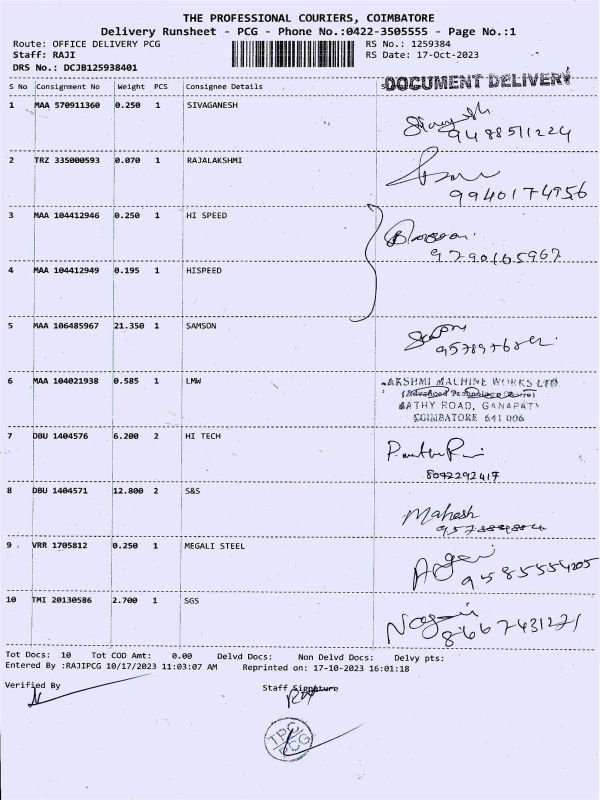 THE PROFESSIONAL COURIERS, COIMBATORE
Delivery Runsheet - PCG - Phone No.:0422-3505555 - Page No.:1
Route: OFFICE DELIVERY PCG
RS No.: 1259384
Staff: RAJI
RS Date: 17-Oct-2023
DRS No.: DCJB125938401
S No Consignment No Weight PCS Consignee Details
DOCUMENT DELIVERY
1 MAA 570911360 0.250 1 SIVAGANESH
9488511224
2 TRZ 335000593 0.070 1 RAJALAKSHMI
9940174956
3 MAA 104412946 0.250 1 HI SPEED
9790165967
4 MAA 104412949 0.195 1 HISPEED
5 MAA 106485967 21.350 1 SAMSON
6 MAA 104021938 0.585 1 LMW
LAKSHMI MACHINE WORKS LTD
SATHY ROAD, GANAPATY
COIMBATORE 641 006
7 DBU 1404576 6.200 2 HI TECH
8072292417
8 DBU 1404571 12.800 2 S&S
Mahesh
9 VRR 1705812 0.250 1 MEGALI STEEL
9585554205
10 TMI 20130586 2.700 1 SGS
8667431271
Tot Docs: 10 Tot COD Amt: 0.00 Delvd Docs: Non Delvd Docs: Delvy pts:
Entered By :RAJIPCG 10/17/2023 11:03:07 AM Reprinted on: 17-10-2023 16:01:18
Verified By
Staff Signature
TPC
PCG